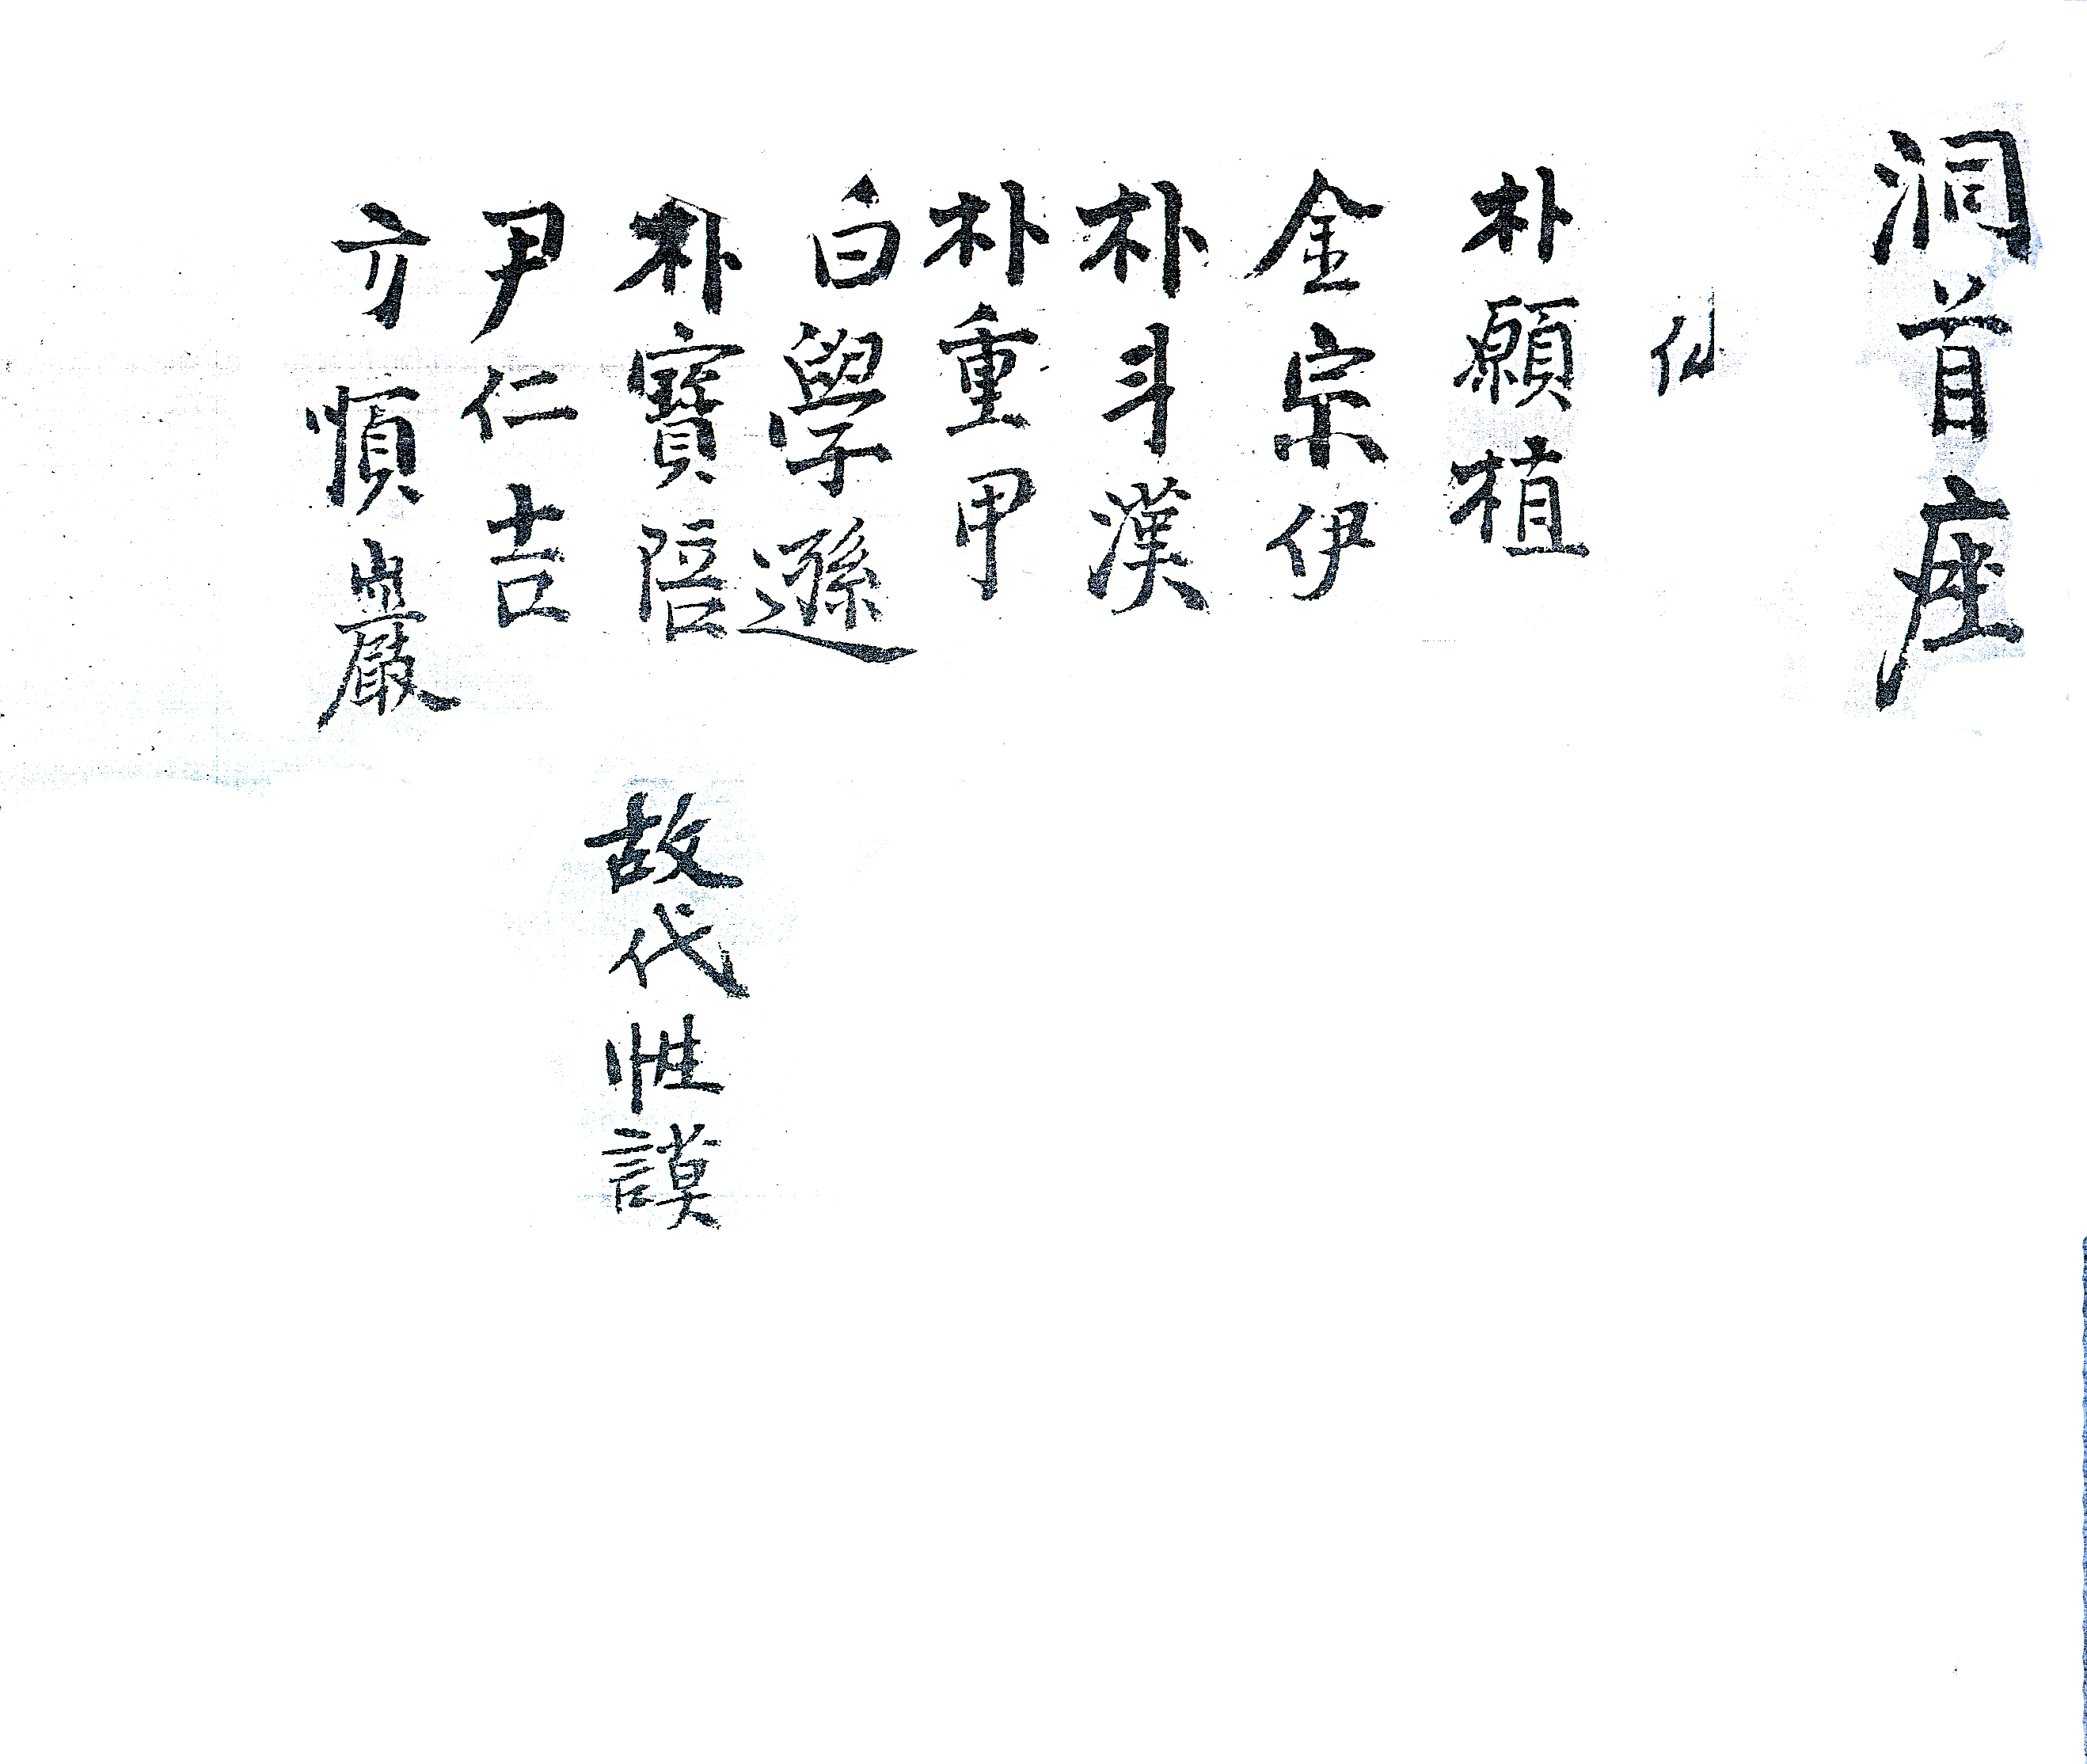 洞首座
仏
朴願植
金宗伊
朴斗漢
朴重甲
白學遜
朴寶陪 故代性謨
尹仁吉
方順巖